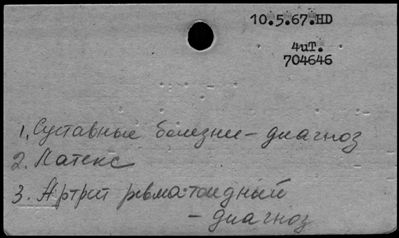 10.5.67.HD
4иТ.
704646
1. Суставные болезни - диагноз
2. Латекс
3. Артрит ревматоидный
- диагноз